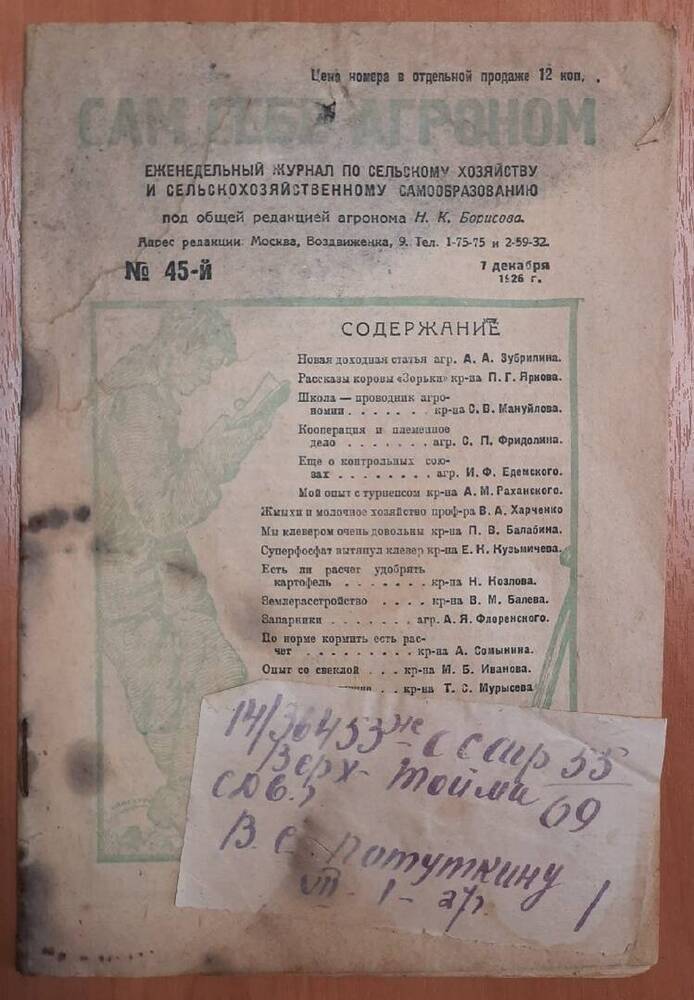 Цена номера в отдельной продаже 12 коп.
САМ СЕБЕ АГРОНОМ
ЕЖЕНЕДЕЛЬНЫЙ ЖУРНАЛ ПО СЕЛЬСКОМУ ХОЗЯЙСТВУ
И СЕЛЬСКОХОЗЯЙСТВЕННОМУ САМООБРАЗОВАНИЮ
под общей редакцией агронома Н. К. Борисова.
Адрес редакции: Москва, Воздвиженка, 9. Тел. 1-75-75 и 2-59-32.
№ 45-й
7 декабря
1926 г.
СОДЕРЖАНИЕ
Новая доходная статья агр. А. А. Зубрилина.
Рассказы коровы «Зорьки» кр-на П. Г. Яркова.
Школа — проводник агро-
номии . . . . . . . кр-на С. В. Мануйлова.
Кооперация и племенное
дело . . . . . . . агр. С. П. Фридолина.
Еще о контрольных сою-
зах . . . . . . . . агр. И. Ф. Едемского.
Мой опыт с турнепсом кр-на А. М. Раханского.
Жмыхи и молочное хозяйство проф-ра В. А. Харченко
Мы клевером очень довольны кр-на П. В. Балабина.
Суперфосфат вытянул клевер кр-на Е. К. Кузьмичева.
Есть ли расчет удобрять
картофель . . . . . . . кр-на Н. Козлова.
Землерасстройство . . . . кр-на В. М. Балева.
Запарники . . . . . . . агр. А. Я. Флоренского.
По норме кормить есть рас-
чет . . . . . . . . . кр-на А. Сомынина.
Опыт со свеклой . . . кр-на М. Б. Иванова.
. . кр-на Т. С. Мурысева
14/36453 же - 55
Верх- Тойма 69
В. С. Потуткину
VII - 1 - 27г. 1